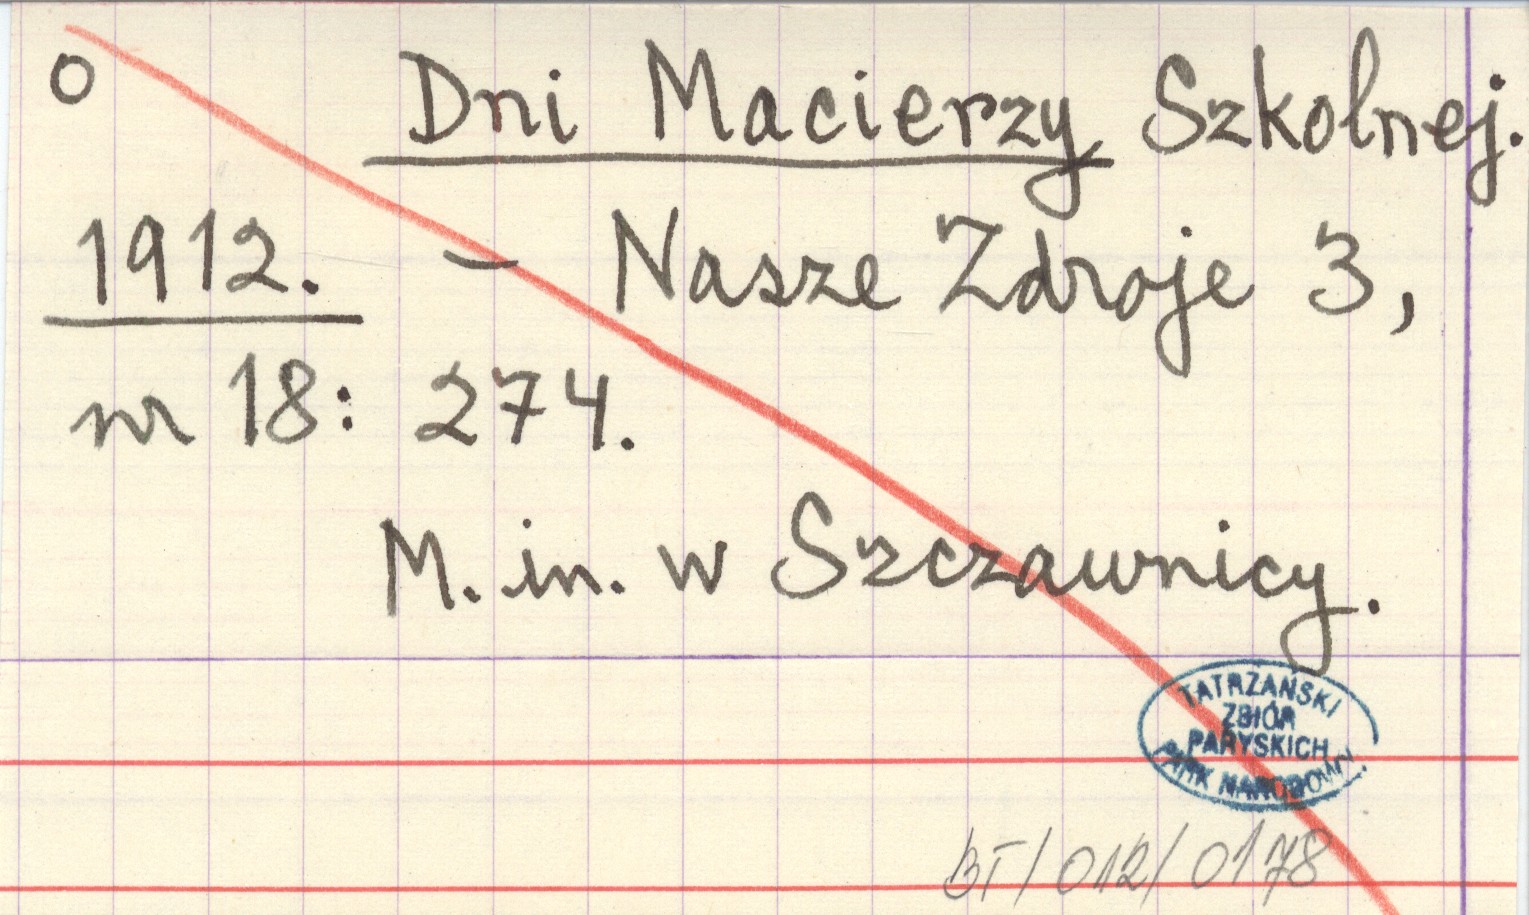 O Dni Macierzy Szkolnej.
1912. – Nasze Zdroje 3,
nr 18: 274.
M. in. w Szczawnicy.
TATRZAŃSKI
ZBIÓR
PARYSKICH
PARK NARODOWY
BT/012/0178